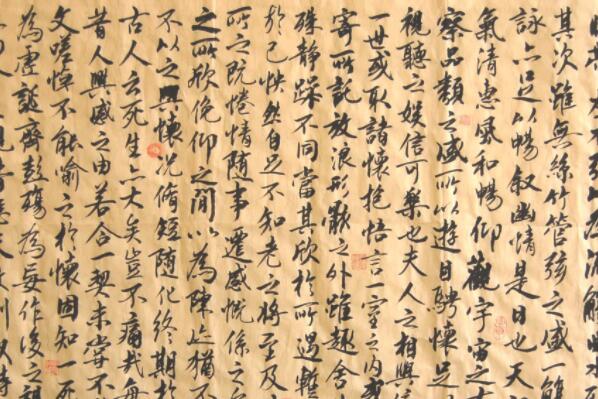 引以為流觴曲水
其次雖無絲竹管弦之盛一觴
詠亦足以暢敘幽情是日也天
氣清惠風和暢仰觀宇宙之大
察品類之盛所以遊目騁懷足
視聽之娛信可樂也夫人之相與
一世或取諸懷抱悟言一室之內
寄所託放浪形骸之外雖趣舍
殊靜躁不同當其欣於所遇暫
於己快然自足不知老之將至及
所之既惓情隨事遷感慨係之
之所欣俛仰之間以為陳迹猶不
不以之興懷況脩短隨化終期於
古人云死生亦大矣豈不痛哉每
昔人興感之由若合一契未嘗不
文嗟悼不能喻之於懷固知一死
為虛誕齊彭殤為妄作後之視